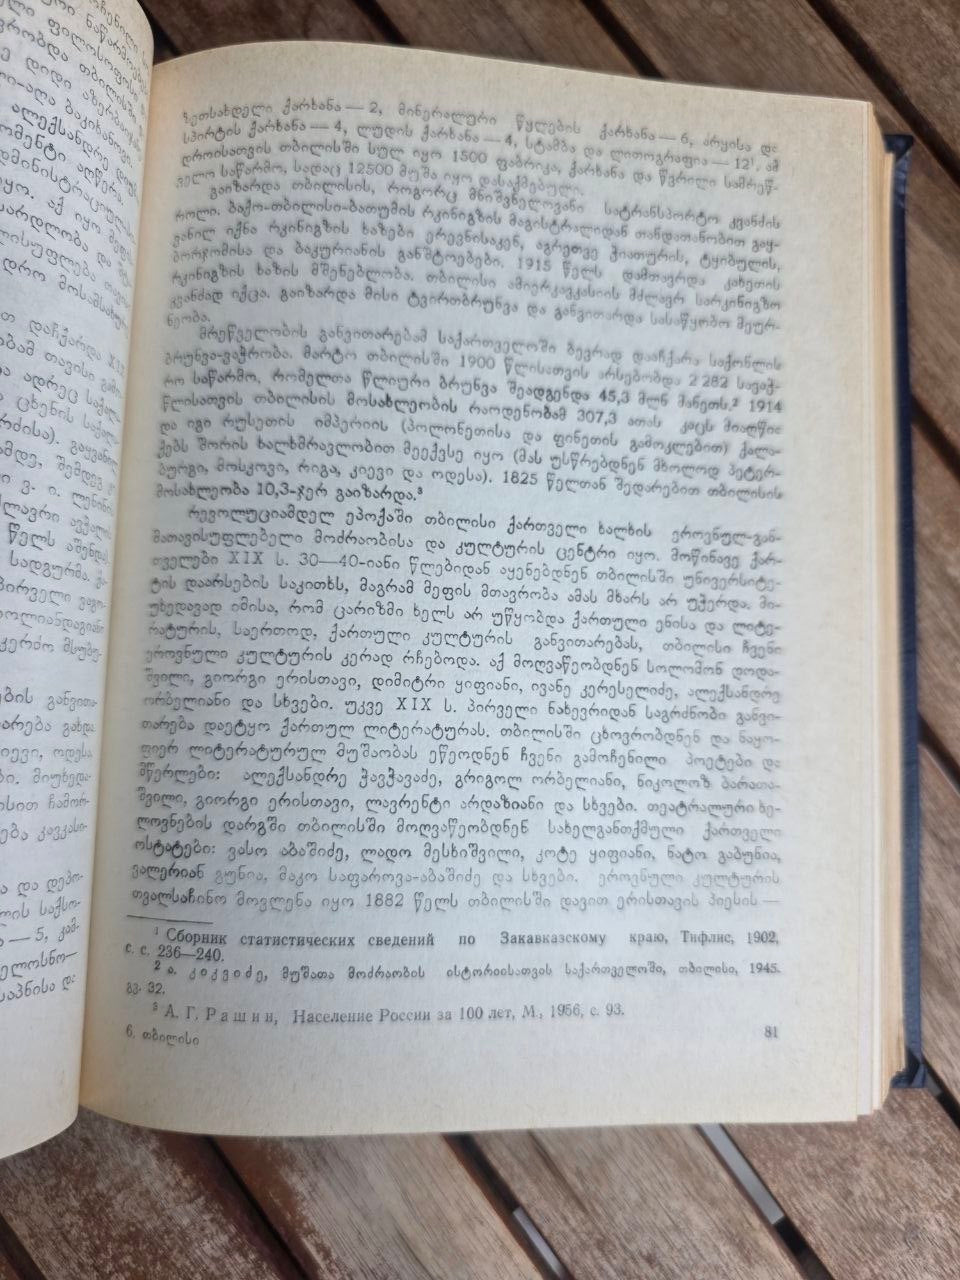 ზეთსახდელი ქარხანა — 2, მინერალური წყლების ქარხანა — 6, არყისა და
სპირტის ქარხანა — 4, ლუდის ქარხანა — 4, სტამბა და ლითოგრაფია — 12¹. ამ
დროისათვის თბილისში სულ იყო 1500 ფაბრიკა, ქარხანა და წვრილი სამრეწ-
ველო საწარმო, სადაც 12500 მუშა იყო დასაქმებული.
გაიზარდა თბილისის, როგორც მნიშვნელოვანი სატრანსპორტო კვანძის
როლი. ბაქო-თბილისი-ბათუმის რკინიგზის მაგისტრალიდან თანდათანობით გაყ-
ვანილ იქნა რკინიგზის ხაზები ერევნისაკენ, აგრეთვე ჭიათურის, ტყიბულის,
ბორჯომისა და ბაკურიანის განშტოებები. 1915 წელს დამთავრდა კახეთის
რკინიგზის ხაზის მშენებლობა. თბილისი ამიერკავკასიის მძლავრ სარკინიგზო
კვანძად იქცა. გაიზარდა მისი ტვირთბრუნვა და განვითარდა სასაწყობო მეურ-
ნეობა.
მრეწველობის განვითარებამ საქართველოში ბევრად დააჩქარა საქონლის
ბრუნვა-ვაჭრობა. მარტო თბილისში 1900 წლისათვის არსებობდა 2 282 სავაჭ-
რო საწარმო, რომელთა წლიური ბრუნვა შეადგენდა 45,3 მლნ მანეთს.² 1914
წლისათვის თბილისის მოსახლეობის რაოდენობამ 307,3 ათას კაცს მიაღწია
და იგი რუსეთის იმპერიის (პოლონეთისა და ფინეთის გამოკლებით) ქალა-
ქებს შორის ხალხმრავლობით მეექვსე იყო (მას უსწრებდნენ მხოლოდ პეტერ-
ბურგი, მოსკოვი, რიგა, კიევი და ოდესა). 1825 წელთან შედარებით თბილისის
მოსახლეობა 10,3-ჯერ გაიზარდა.³
რევოლუციამდელ ეპოქაში თბილისი ქართველი ხალხის ეროვნულ-გან-
მათავისუფლებელი მოძრაობისა და კულტურის ცენტრი იყო. მოწინავე ქარ-
თველები XIX ს. 30—40-იანი წლებიდან აყენებდნენ თბილისში უნივერსიტე-
ტის დაარსების საკითხს, მაგრამ მეფის მთავრობა ამას მხარს არ უჭერდა. მი-
უხედავად იმისა, რომ ცარიზმი ხელს არ უწყობდა ქართული ენისა და ლიტე-
რატურის, საერთოდ, ქართული კულტურის განვითარებას, თბილისი ჩვენი
ეროვნული კულტურის კერად რჩებოდა. აქ მოღვაწეობდნენ სოლომონ დოდა-
შვილი, გიორგი ერისთავი, დიმიტრი ყიფიანი, ივანე კერესელიძე, ალექსანდრე
ორბელიანი და სხვები. უკვე XIX ს. პირველი ნახევრიდან საგრძნობი განვი-
თარება დაეტყო ქართულ ლიტერატურას. თბილისში ცხოვრობდნენ და ნაყო-
ფიერ ლიტერატურულ მუშაობას ეწეოდნენ ჩვენი გამოჩენილი პოეტები და
მწერლები: ალექსანდრე ჭავჭავაძე, გრიგოლ ორბელიანი, ნიკოლოზ ბარათა-
შვილი, გიორგი ერისთავი, ლავრენტი არდაზიანი და სხვები. თეატრალური ხე-
ლოვნების დარგში თბილისში მოღვაწეობდნენ სახელგანთქმული ქართველი
ოსტატები: ვასო აბაშიძე, ლადო მესხიშვილი, კოტე ყიფიანი, ნატო გაბუნია,
ვალერიან გუნია, მაკო საფაროვა-აბაშიძე და სხვები. ეროვნული კულტურის
თვალსაჩინო მოვლენა იყო 1882 წელს თბილისში დავით ერისთავის პიესის —
¹ Сборник статистических сведений по Закавказскому краю, Тифлис, 1902,
с. с. 236—240.
² ა. კიკვიძე, მუშათა მოძრაობის ისტორიისათვის საქართველოში, თბილისი, 1945.
გვ. 32.
³ А. Г. Рашин, Население России за 100 лет, М., 1956, с. 93.
6. თბილისი
81